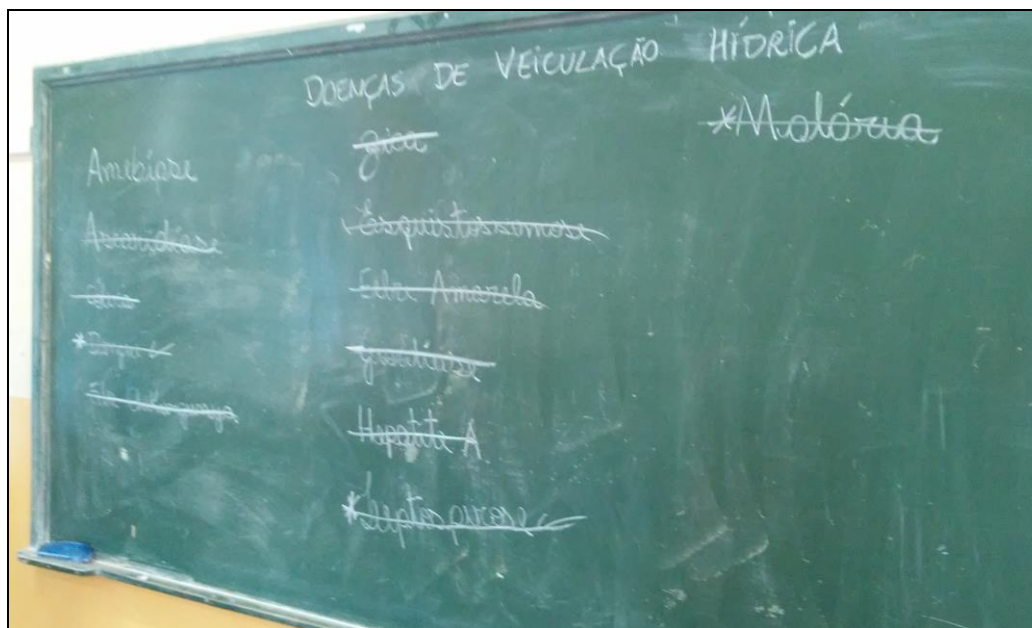 DOENÇAS DE VEICULAÇÃO HÍDRICA
Amebíase
Ascaridíase
Cólera
*Dengue
Febre Chikungunya
Zica
Esquistossomose
Febre Amarela
Giardíase
Hepatite A
*Leptospirose
*Malária